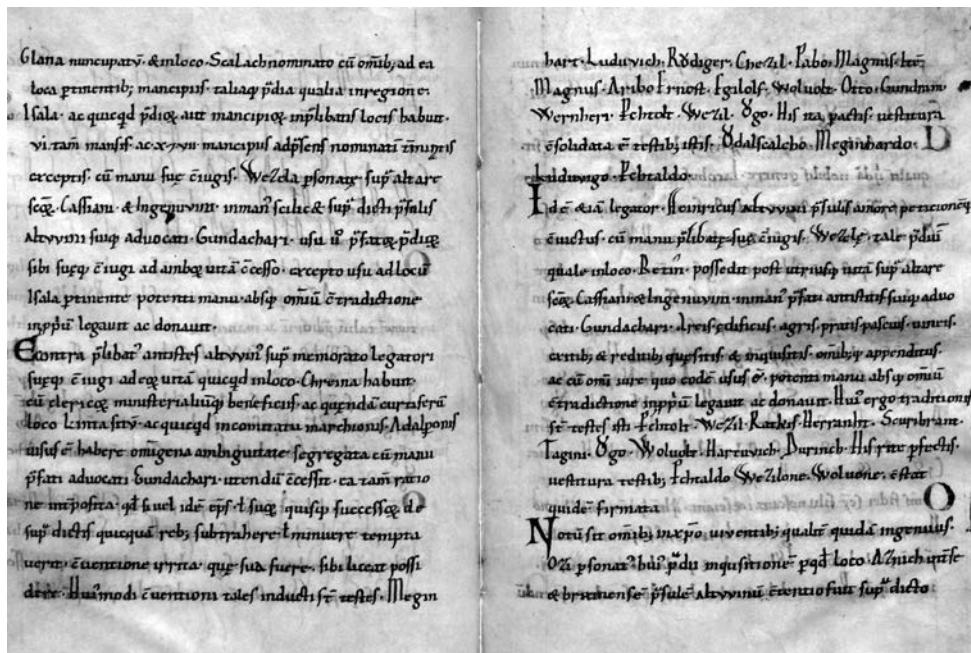 Glana nuncupatū · & inloco · Scalach nominato cū om̄ib; ad ea
loca ptinentib; mancipiis · taliaq; p̄dia qualia inregione ·
Isala · ac quicqd p̄dioꝝ aut mancipioꝝ inp̄libatis locis habuit ·
vi · tam̄ mansis · ac · x · mancipiis adp̄sens nominati
exceptis · cū manu suę c̄iugis · Wezela psonatę · sup̄ altare
scoꝝ · Cassiani · & Ingenuvini · inman̄ scilic& sup̄ dicti p̄sulis
Altvvini suiq; advocati · Gundachari · usu u° p̄fatoꝝ p̄dioꝝ
sibi suęq; c̄iugi ad amboꝝ uitā c̄cesso · excepto usu ad locū
Isala ptinente potenti manu · absq; om̄iū c̄tradictione
inppiū legauit ac donauit ·
Econtra p̄libat' antistes altvvin' sup̄ memorato legatori
suęq; c̄iugi ad eoꝝ uitā quicqd inloco · Chreina habuit ·
cū clericoꝝ ministerialiūq; beneficiis · ac quendā curtiferū
loco Linta sitū · ac quicqd incomitatu marchionis · Adalponis
uisus ē habere om̄igena ambiguitate segregata cū manu
p̄fati advocati Gundachari · utendū c̄cessit · ea tam̄ ratio
ne inposita · qd si uel idē ep̄s · ł suoꝝ quisq; successoꝝ de
sup̄ dictis quicquā reb; subtrahere · ł minuere tempta
uerit · c̄uentione irrita · quę sua fuere · sibi liceat possi
dere · Hui'modi c̄uentioni tales inducti st̄ testes · Megin
hart · Luduvich · Rŏdiger · Chezil · Pabo · Magnus · Itē
Magnus · Aribo · Ernost · Egilolf · Woluolt · Otto · Gundram
Wernheri · Pehtolt · Wezil · Vgo · His ita pactis · uestitura
c̄solidata ē testib; istis · Vdalscalcho · Meginhardo ·
Luduvigo · Pehtaldo ·
Idē &iā legator · Heinricus altvvini p̄sulis amore petitioneq;
c̄uictus · cū manu p̄libatę suę c̄iugis · Wezelę · tale p̄diū
quale inloco · Retin · possedit post utriusq; uitā sup̄ altare
scoꝝ · Cassiani · & Ingenuvini · inman̄ p̄fati antistitis suiq; advo
cati · Gundachari · Areis · edificiis · agris · pratis · pascuis · uineis ·
exitib; & reditib; quesitis · & inquisitis · om̄ibusq; appenditiis ·
ac cū om̄i iure quo eodē usus ē · potenti manu absq; om̄iū
c̄tradictione inppiū legauit ac donauit · Hui' ergo traditionis
st̄ testes isti · Pehtolt · Wezil · Ratkis · Herranht · Scurbrant ·
Tagini · Vgo · Woluolt · Hartvvich · Durinch · His rite pfectis ·
uestitura testib; Pehtaldo Wezilone · Woluone · c̄stat
quidē firmata
Notū sit om̄ib; inxp̄o uiventib; qualit̄ quidā ingenuus ·
Ozi psonat' hui' p̄dii inquisitione p qd loco · Aznich
& brixinensē p̄sulē altvvinū c̄tentio fuit sup̄ dicto